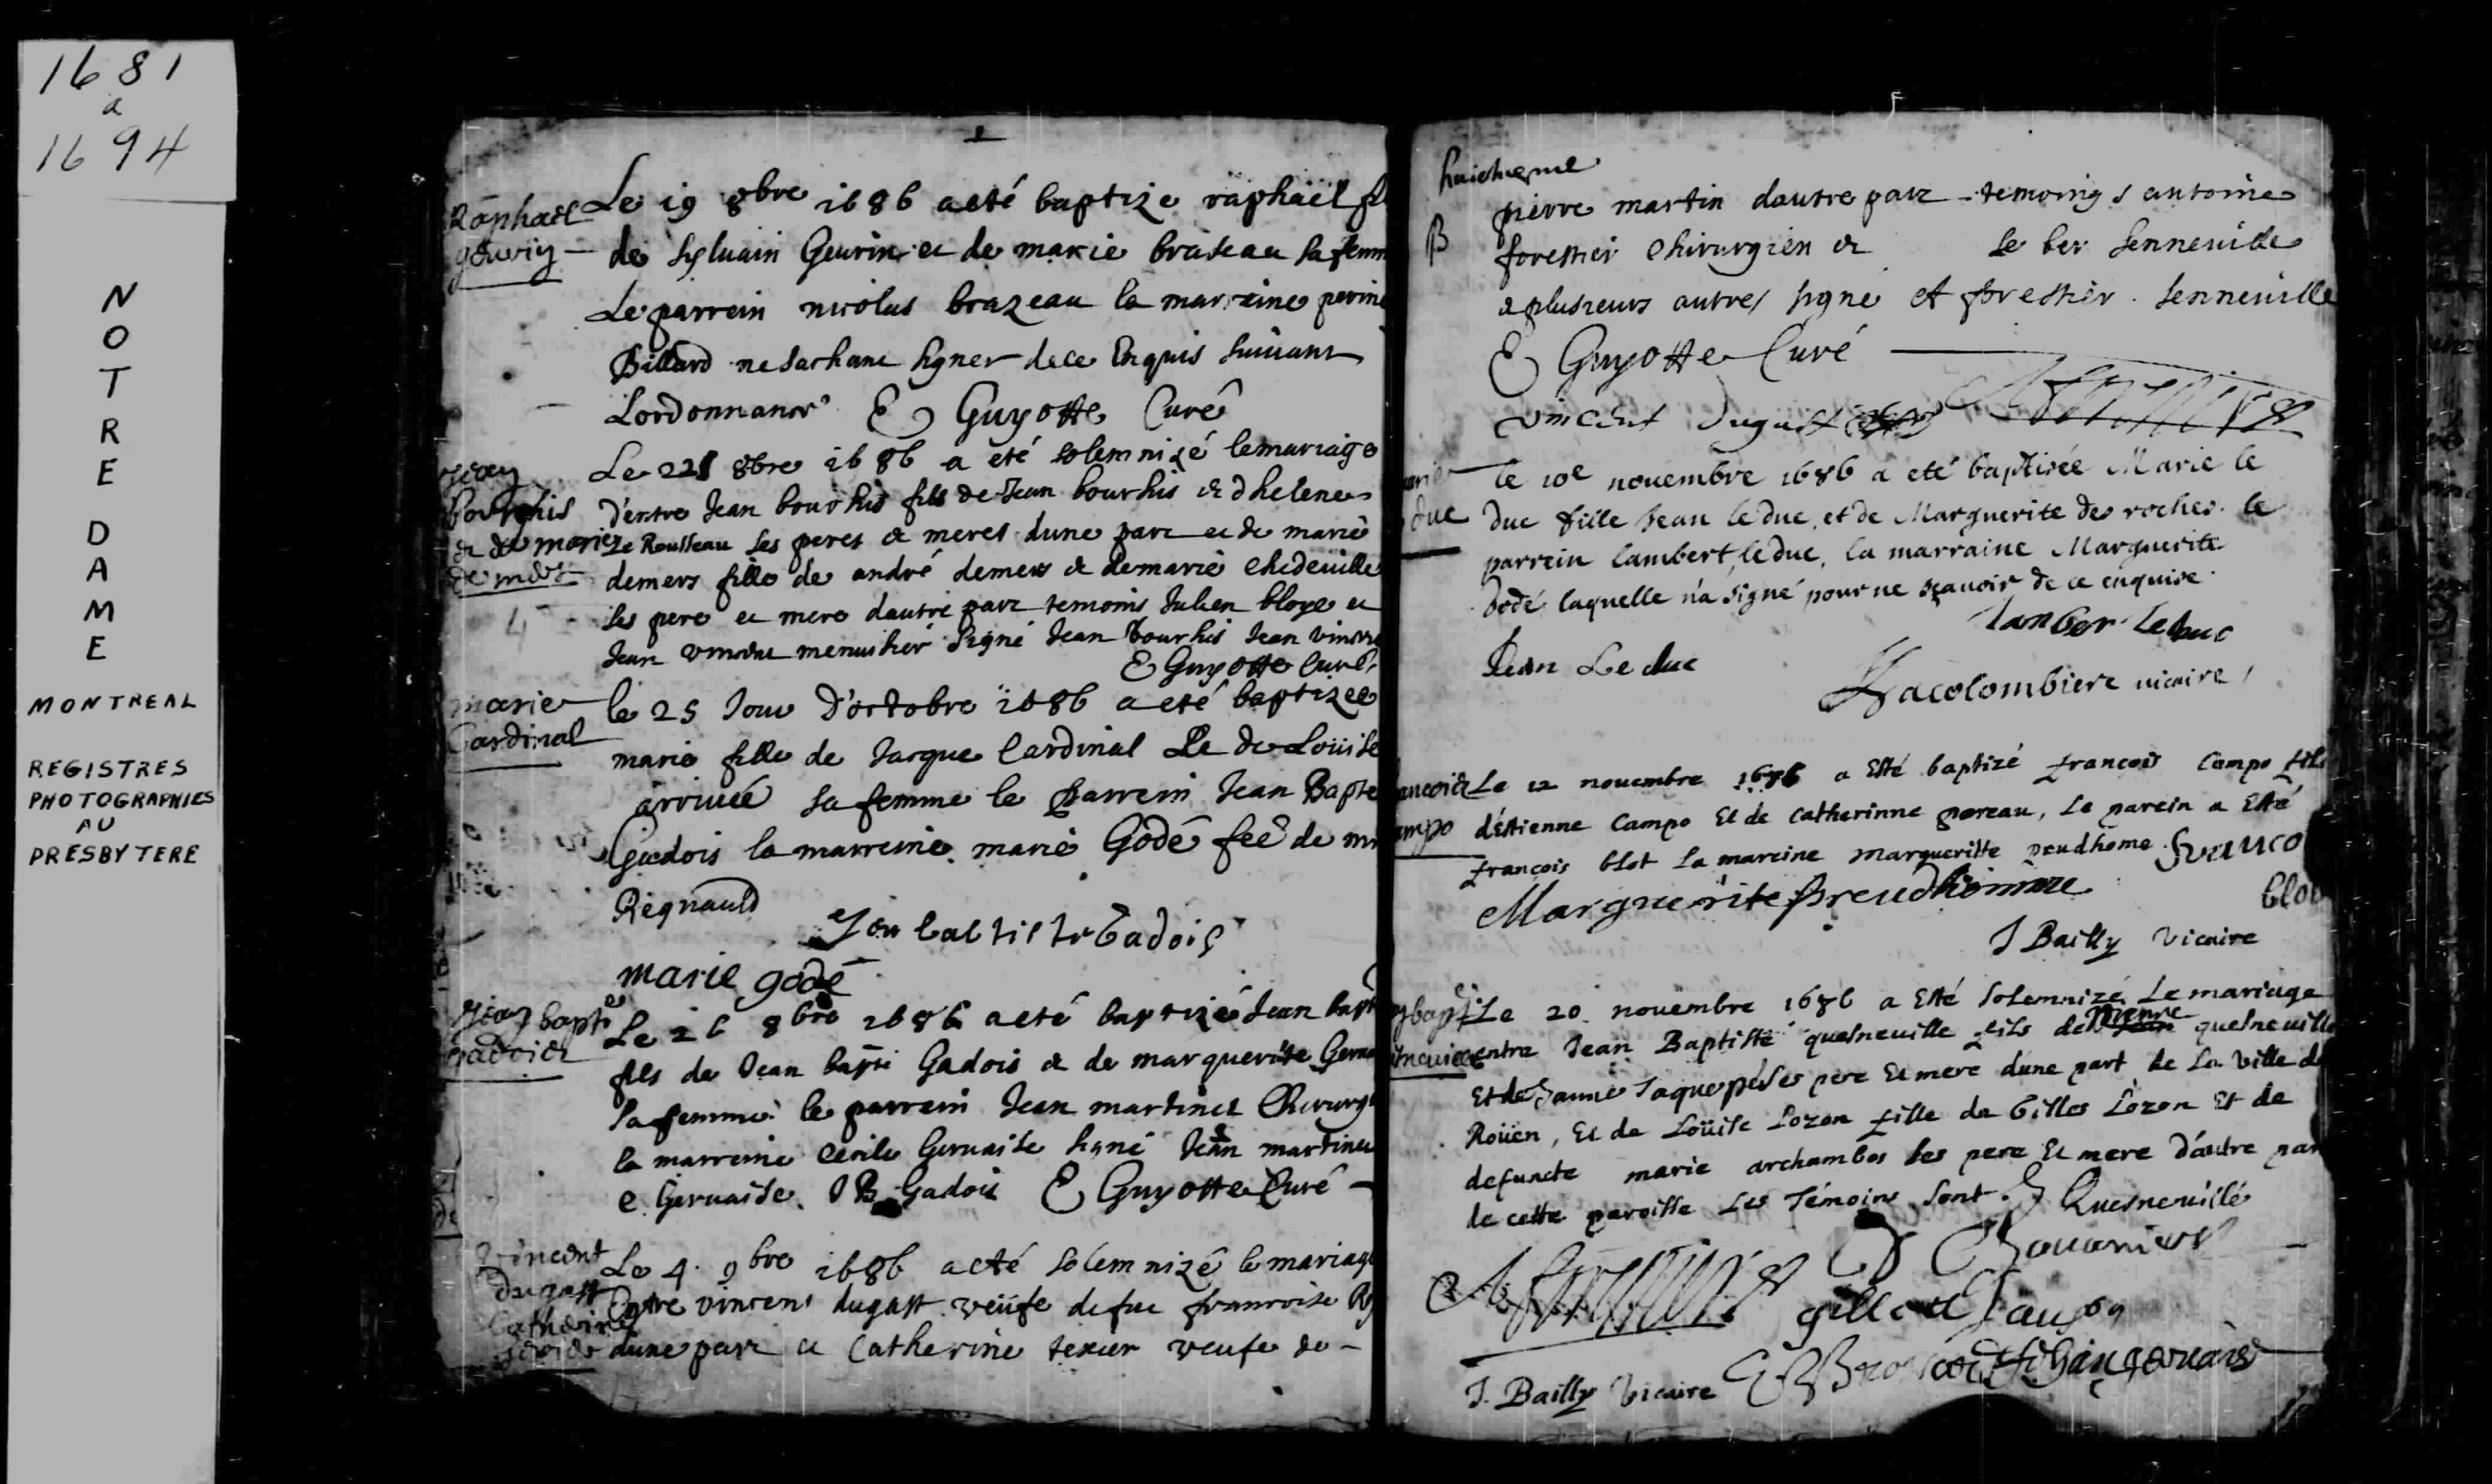 1681
a
1694
NOTRE DAME
MONTREAL
REGISTRES
PHOTOGRAPHIES
AU
PRESBYTERE
Raphael
geuriy
Le 19 8bre 1686 a eté baptize raphaël
de Syluain Geurin et de marie braseau sa femm
Le parrein nicolas brazeau la marreine perine
Billard ne sachant signer de ce enquis suiuant
Lordonnance E Guyotte Curé
Jean
bourhis
et de marie
demers
4
Le 22 8bre 1686 a eté solemnizé le mariage
d'entre Jean bourhis fils de Jean bourhis et d helene
Le Rousseau ses peres et meres dune part et de marie
demers fille de andré demers et de marie chedeuille
ses pere et mere dautre part temoins Julien bloye et
Jean menuisier Signé Jean Bourhis Jean
E Guyotte Curé
marie
Cardinal
le 25 Jour D'octobre 1686 a eté baptizée
marie fille de Jacque Cardinal et de Loüise
arriuée sa femme le parrein Jean Bapte
Gadois la marreine marie Godé feē de
Regnauld
Jan batiste Gadois
marie godé
Jean bapte
gadois
Le 26 8bre 1686 a eté baptizé Jean bapt
fils de Jean bapte Gadois et de marguerite Gerua
sa femme le parrein Jean martinet Chirurgi
la marreine Cecile Geruaise signé Jean martinet
c. Geruaise. J B Gadois E Guyotte Curé
Vincent
Dugast
Catherine
Le 4. 9bre 1686 a eté solemnizé le mariage
Entre vincent dugast veüfe de fue francoise
dune part et Catherine texier veufe de
huictieme
B
pierre martin dautre part temoings antoine
forestier Chirurgien et le ber Senneuille
et plusieurs autres signé et forestier. Senneuille
E Guyotte Curé
vincent dugast
duc
le 10e novembre 1686 a eté baptisée Marie le
duc fille Jean le duc, et de Marguerite des roches. le
parrein lambert le duc, la marraine Marguerite
Dodé laquelle n'a signé pour ne sçavoir de ce enquise
lanber Leduc
Jean Le duc
Lacolombiere vicaire
ancois
ampo
Le 12 novembre 1686 a Esté baptizé francois Campo fils
d'Estienne Campo et de catherinne poreau, Le parein a Esté
françois blot La mareine margueritte prudhome. franco
blot
Marguerite preudhomme
J Bailly Vicaire
Le 20 novembre 1686 a Esté Solemnizé Le mariage
entre Jean Baptiste quesneuille fils de pierre quesneuille
Et de Janne Jaque ses pere Et mere d'une part de La Ville de
Roüen, Et de Loüise Lozon fille de Gilles Lozon Et de
defuncte marie archambos ses pere Et mere d'autre par
de cette paroisse Les Témoins sont. J Quesneuille
gille
J. Bailly Vicaire